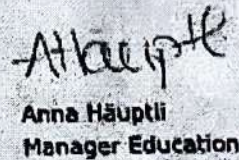 AHäuptli
Anna Häuptli
Manager Education